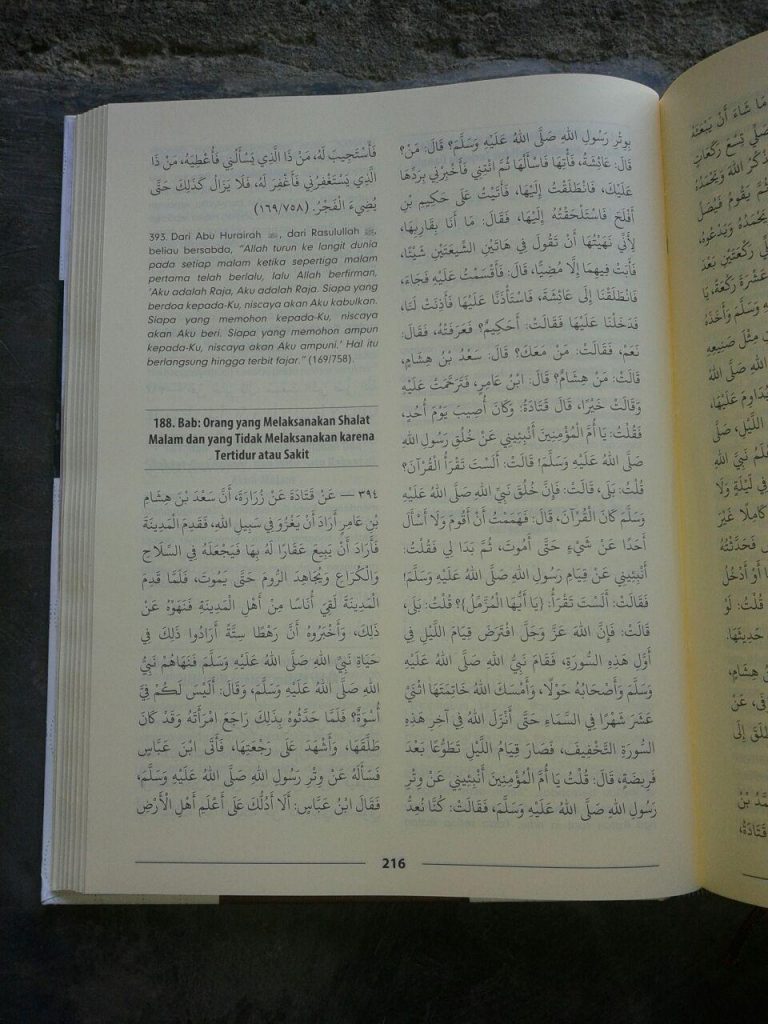 فَأَسْتَجِيبَ لَهُ، مَنْ ذَا الَّذِي يَسْأَلُنِي فَأُعْطِيَهُ، مَنْ ذَا
الَّذِي يَسْتَغْفِرُنِي فَأَغْفِرَ لَهُ، فَلَا يَزَالُ كَذَلِكَ حَتَّى
يُضِيءَ الْفَجْرُ. (١٦٩/٧٥٨)
393. Dari Abu Hurairah ؓ, dari Rasulullah ﷺ,
beliau bersabda, "Allah turun ke langit dunia
pada setiap malam ketika sepertiga malam
pertama telah berlalu, lalu Allah berfirman,
'Aku adalah Raja, Aku adalah Raja. Siapa yang
berdoa kepada-Ku, niscaya akan Aku kabulkan.
Siapa yang memohon kepada-Ku, niscaya
akan Aku beri. Siapa yang memohon ampun
kepada-Ku, niscaya akan Aku ampuni.' Hal itu
berlangsung hingga terbit fajar." (169/758).
188. Bab: Orang yang Melaksanakan Shalat
Malam dan yang Tidak Melaksanakan karena
Tertidur atau Sakit
٣٩٤ — عَنْ قَتَادَةَ عَنْ زُرَارَةَ، أَنَّ سَعْدَ بْنَ هِشَامِ
بْنِ عَامِرٍ أَرَادَ أَنْ يَغْزُوَ فِي سَبِيلِ اللهِ، فَقَدِمَ الْمَدِينَةَ
فَأَرَادَ أَنْ يَبِيعَ عَقَارًا لَهُ بِهَا فَيَجْعَلَهُ فِي السِّلَاحِ
وَالْكُرَاعِ وَيُجَاهِدَ الرُّومَ حَتَّى يَمُوتَ، فَلَمَّا قَدِمَ
الْمَدِينَةَ لَقِيَ أُنَاسًا مِنْ أَهْلِ الْمَدِينَةِ فَنَهَوْهُ عَنْ
ذَلِكَ، وَأَخْبَرُوهُ أَنَّ رَهْطًا سِتَّةً أَرَادُوا ذَلِكَ فِي
حَيَاةِ نَبِيِّ اللهِ صَلَّى اللهُ عَلَيْهِ وَسَلَّمَ فَنَهَاهُمْ نَبِيُّ
اللهِ صَلَّى اللهُ عَلَيْهِ وَسَلَّمَ، وَقَالَ: أَلَيْسَ لَكُمْ فِيَّ
أُسْوَةٌ؟ فَلَمَّا حَدَّثُوهُ بِذَلِكَ رَاجَعَ امْرَأَتَهُ وَقَدْ كَانَ
طَلَّقَهَا، وَأَشْهَدَ عَلَى رَجْعَتِهَا، فَأَتَى ابْنَ عَبَّاسٍ
فَسَأَلَهُ عَنْ وِتْرِ رَسُولِ اللهِ صَلَّى اللهُ عَلَيْهِ وَسَلَّمَ،
فَقَالَ ابْنُ عَبَّاسٍ: أَلَا أَدُلُّكَ عَلَى أَعْلَمِ أَهْلِ الْأَرْضِ
بِوِتْرِ رَسُولِ اللهِ صَلَّى اللهُ عَلَيْهِ وَسَلَّمَ؟ قَالَ: مَنْ؟
قَالَ: عَائِشَةُ، فَأْتِهَا فَاسْأَلْهَا ثُمَّ ائْتِنِي فَأَخْبِرْنِي بِرَدِّهَا
عَلَيْكَ، فَانْطَلَقْتُ إِلَيْهَا، فَأَتَيْتُ عَلَى حَكِيمِ بْنِ
أَفْلَحَ فَاسْتَلْحَقْتُهُ إِلَيْهَا، فَقَالَ: مَا أَنَا بِقَارِبِهَا،
لِأَنِّي نَهَيْتُهَا أَنْ تَقُولَ فِي هَاتَيْنِ الشِّيعَتَيْنِ شَيْئًا،
فَأَبَتْ فِيهِمَا إِلَّا مُضِيًّا، قَالَ: فَأَقْسَمْتُ عَلَيْهِ فَجَاءَ،
فَانْطَلَقْنَا إِلَى عَائِشَةَ، فَاسْتَأْذَنَّا عَلَيْهَا فَأَذِنَتْ لَنَا،
فَدَخَلْنَا عَلَيْهَا فَقَالَتْ: أَحَكِيمٌ؟ فَعَرَفَتْهُ، فَقَالَ:
نَعَمْ، فَقَالَتْ: مَنْ مَعَكَ؟ قَالَ: سَعْدُ بْنُ هِشَامٍ،
قَالَتْ: مَنْ هِشَامٌ؟ قَالَ: ابْنُ عَامِرٍ، فَتَرَحَّمَتْ عَلَيْهِ
وَقَالَتْ خَيْرًا، قَالَ قَتَادَةُ: وَكَانَ أُصِيبَ يَوْمَ أُحُدٍ،
فَقُلْتُ: يَا أُمَّ الْمُؤْمِنِينَ أَنْبِئِينِي عَنْ خُلُقِ رَسُولِ اللهِ
صَلَّى اللهُ عَلَيْهِ وَسَلَّمَ! قَالَتْ: أَلَسْتَ تَقْرَأُ الْقُرْآنَ؟
قُلْتُ: بَلَى، قَالَتْ: فَإِنَّ خُلُقَ نَبِيِّ اللهِ صَلَّى اللهُ عَلَيْهِ
وَسَلَّمَ كَانَ الْقُرْآنَ، قَالَ: فَهَمَمْتُ أَنْ أَقُومَ وَلَا أَسْأَلَ
أَحَدًا عَنْ شَيْءٍ حَتَّى أَمُوتَ، ثُمَّ بَدَا لِي فَقُلْتُ:
أَنْبِئِينِي عَنْ قِيَامِ رَسُولِ اللهِ صَلَّى اللهُ عَلَيْهِ وَسَلَّمَ!
فَقَالَتْ: أَلَسْتَ تَقْرَأُ: {يَا أَيُّهَا الْمُزَّمِّلُ}؟ قُلْتُ: بَلَى،
قَالَتْ: فَإِنَّ اللهَ عَزَّ وَجَلَّ افْتَرَضَ قِيَامَ اللَّيْلِ فِي
أَوَّلِ هَذِهِ السُّورَةِ، فَقَامَ نَبِيُّ اللهِ صَلَّى اللهُ عَلَيْهِ
وَسَلَّمَ وَأَصْحَابُهُ حَوْلًا، وَأَمْسَكَ اللهُ خَاتِمَتَهَا اثْنَيْ
عَشَرَ شَهْرًا فِي السَّمَاءِ حَتَّى أَنْزَلَ اللهُ فِي آخِرِ هَذِهِ
السُّورَةِ التَّخْفِيفَ، فَصَارَ قِيَامُ اللَّيْلِ تَطَوُّعًا بَعْدَ
فَرِيضَةٍ، قَالَ: قُلْتُ يَا أُمَّ الْمُؤْمِنِينَ أَنْبِئِينِي عَنْ وِتْرِ
رَسُولِ اللهِ صَلَّى اللهُ عَلَيْهِ وَسَلَّمَ، فَقَالَتْ: كُنَّا نُعِدُّ
216
مَا شَاءَ أَنْ يَبْعَثَهُ
صَلِّي تِسْعَ رَكَعَاتٍ
ذْكُرُ اللهَ وَيَحْمَدُهُ
ثُمَّ يَقُومُ فَيُصَلِّ
يَحْمَدُهُ وَيَدْعُوهُ،
رَكْعَتَيْنِ بَعْدَ
عَشْرَةَ رَكْعَةً، يَا
وَسَلَّمَ وَأَخَذَهُ
مِثْلَ صَنِيعِهِ
صَلَّى اللهُ
يُدَاوِمَ عَلَيْهَا،
اللَّيْلِ، صَلَّى
عْلَمُ نَبِيَّ اللهِ
فِي لَيْلَةٍ وَلَا
كَامِلًا غَيْرَ
فَحَدَّثْتُهُ
أَوْ أَدْخُلُ
قُلْتُ: لَوْ
حَدِيثَهَا.
نَ هِشَامٍ،
عَنْ
طَلَقَ إِلَى
مَّدُ بْنُ
قَتَادَةُ،